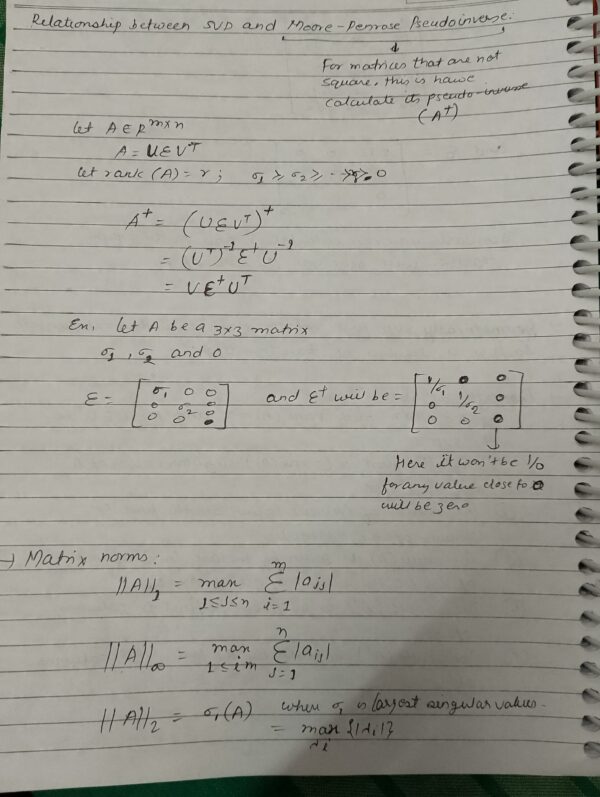 Relationship between SVD and Moore-Penrose Pseudoinverse:
For matrices that are not
square, this is hawc
calculate its pseudo-inverse
(A⁺)
let A ∈ R^{m×n}
A = UΣV^T
let rank (A) = r ; σ₁ ≥ σ₂ ≥ ... ≥ σᵣ ≥ 0
A⁺ = (UΣV^T)⁺
= (V^T)^{-1} Σ⁺ U^{-1}
= VΣ⁺U^T
En. let A be a 3x3 matrix
σ₁, σ₂ and 0
Σ = [ σ₁ 0 0 and Σ⁺ will be = [ 1/σ₁ 0 0
0 σ₂ 0 0 1/σ₂ 0
0 0 0 ] 0 0 0 ]
Here it won't be 1/0
for any value close to 0
will be zero
→ Matrix norms:
||A||₁ = max_{1≤j≤n} Σ_{i=1}^{m} |a_{ij}|
||A||_∞ = max_{1≤im} Σ_{j=1}^{n} |a_{ij}|
||A||₂ = σ₁(A) when σ₁ is largest singular values.
= max_{λi} {|λi|}